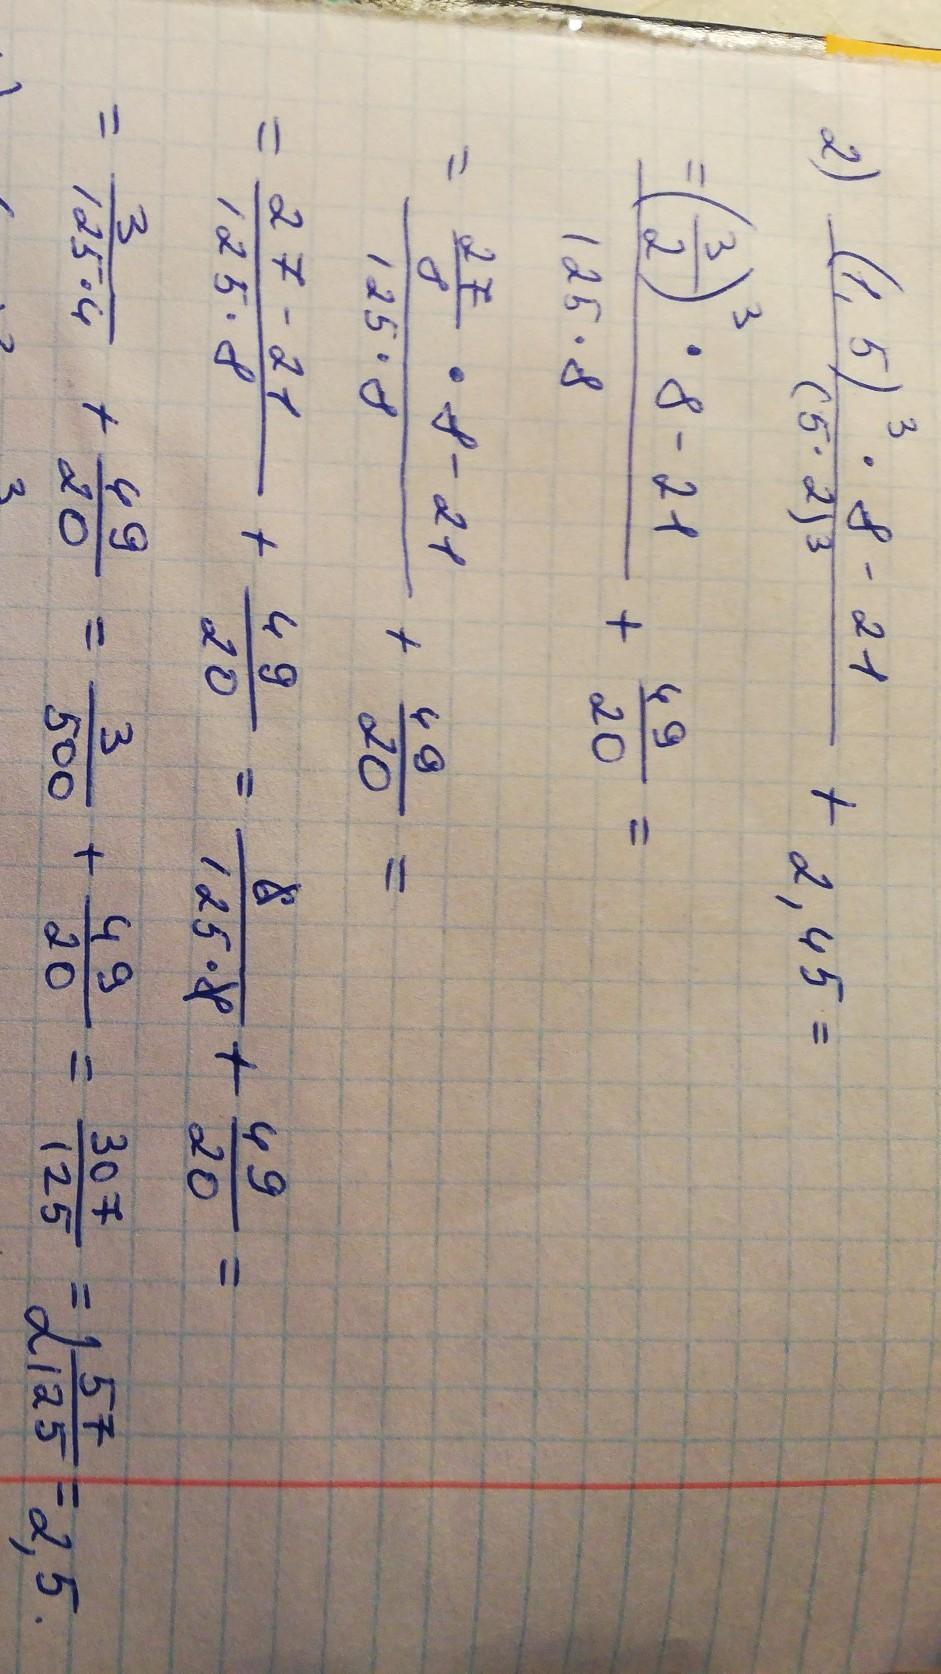 2) ((1,5)³ · 8 - 21)/(5·2)³ + 2,45 =
= ((3/2)³ · 8 - 21)/(125 · 8) + 49/20 =
= (27/8 · 8 - 21)/(125 · 8) + 49/20 =
= (27 - 21)/(125 · 8) + 49/20 = 8/(125 · 8) + 49/20 =
= 3/(125·4) + 49/20 = 3/500 + 49/20 = 307/125 = 2 57/125 = 2,5.